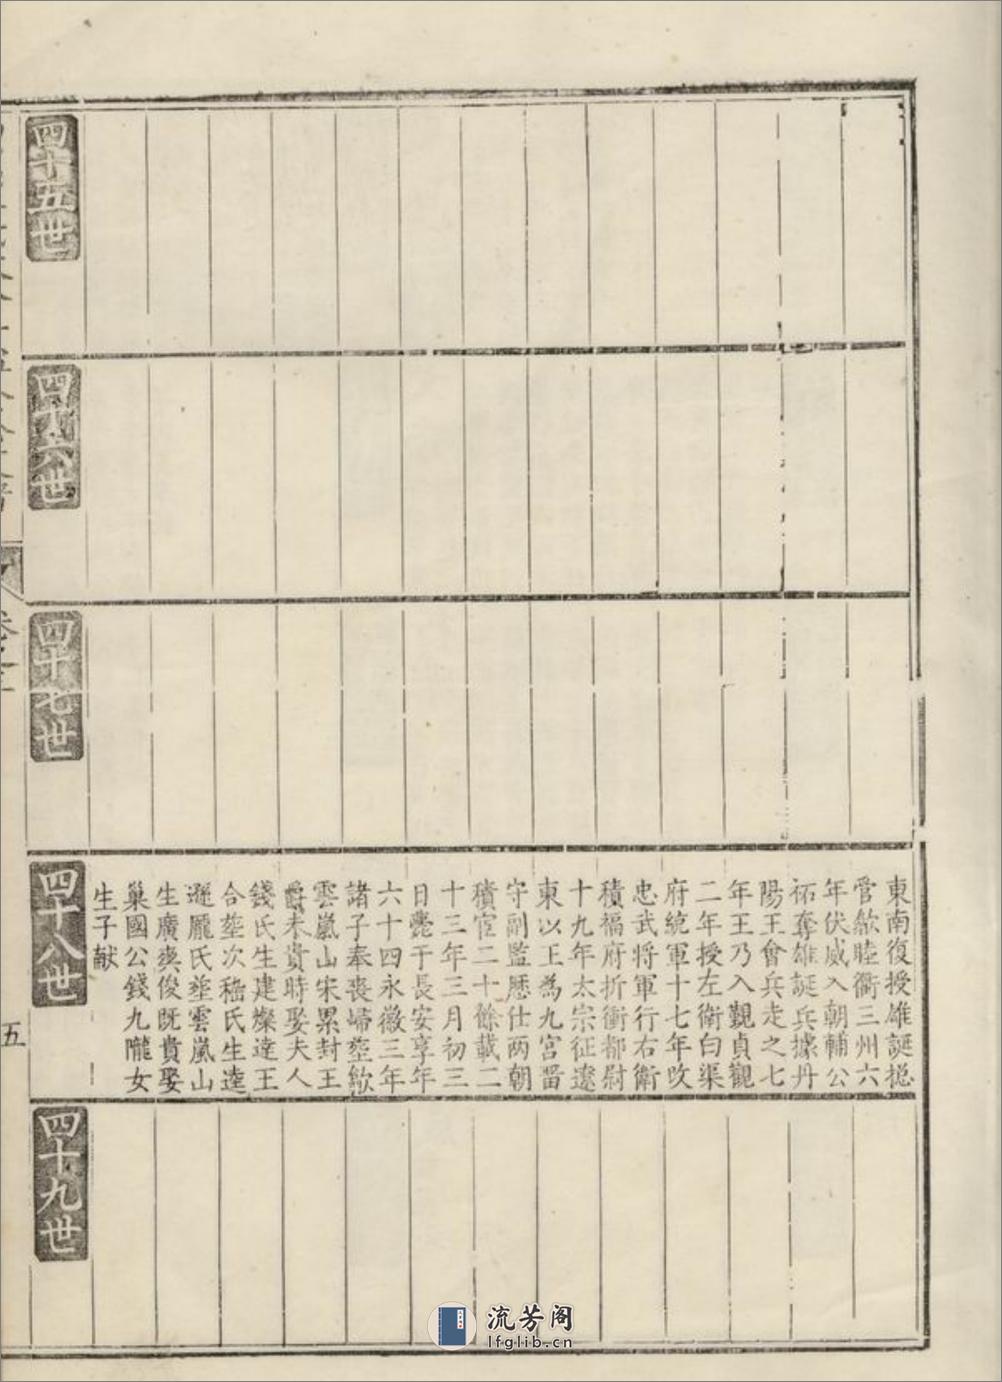 四十五世
四十六世
四十七世
東南復授雄誕摠
管歙睦衢三州六
年伏威入朝輔公
祏奪雄誕兵據丹
陽王會兵走之七
年王乃入覲貞觀
二年授左衛白渠
府統軍十七年改
忠武將軍行右衛
積福府折衝都尉
十九年太宗征遼
東以王為九宮畱
守副監歷仕两朝
積宦二十餘載二
十三年三月初三
日薨于長安享年
六十四永徽三年
諸子奉喪歸塟歙
雲嵐山宋累封王
爵未貴時娶夫人
錢氏生建燦達王
合塟次嵇氏生逵
遜龐氏塟雲嵐山
生廣爽俊既貴娶
巢國公錢九隴女
生子献
四十八世
四十九世
五
流芳阁
lfglib.cn